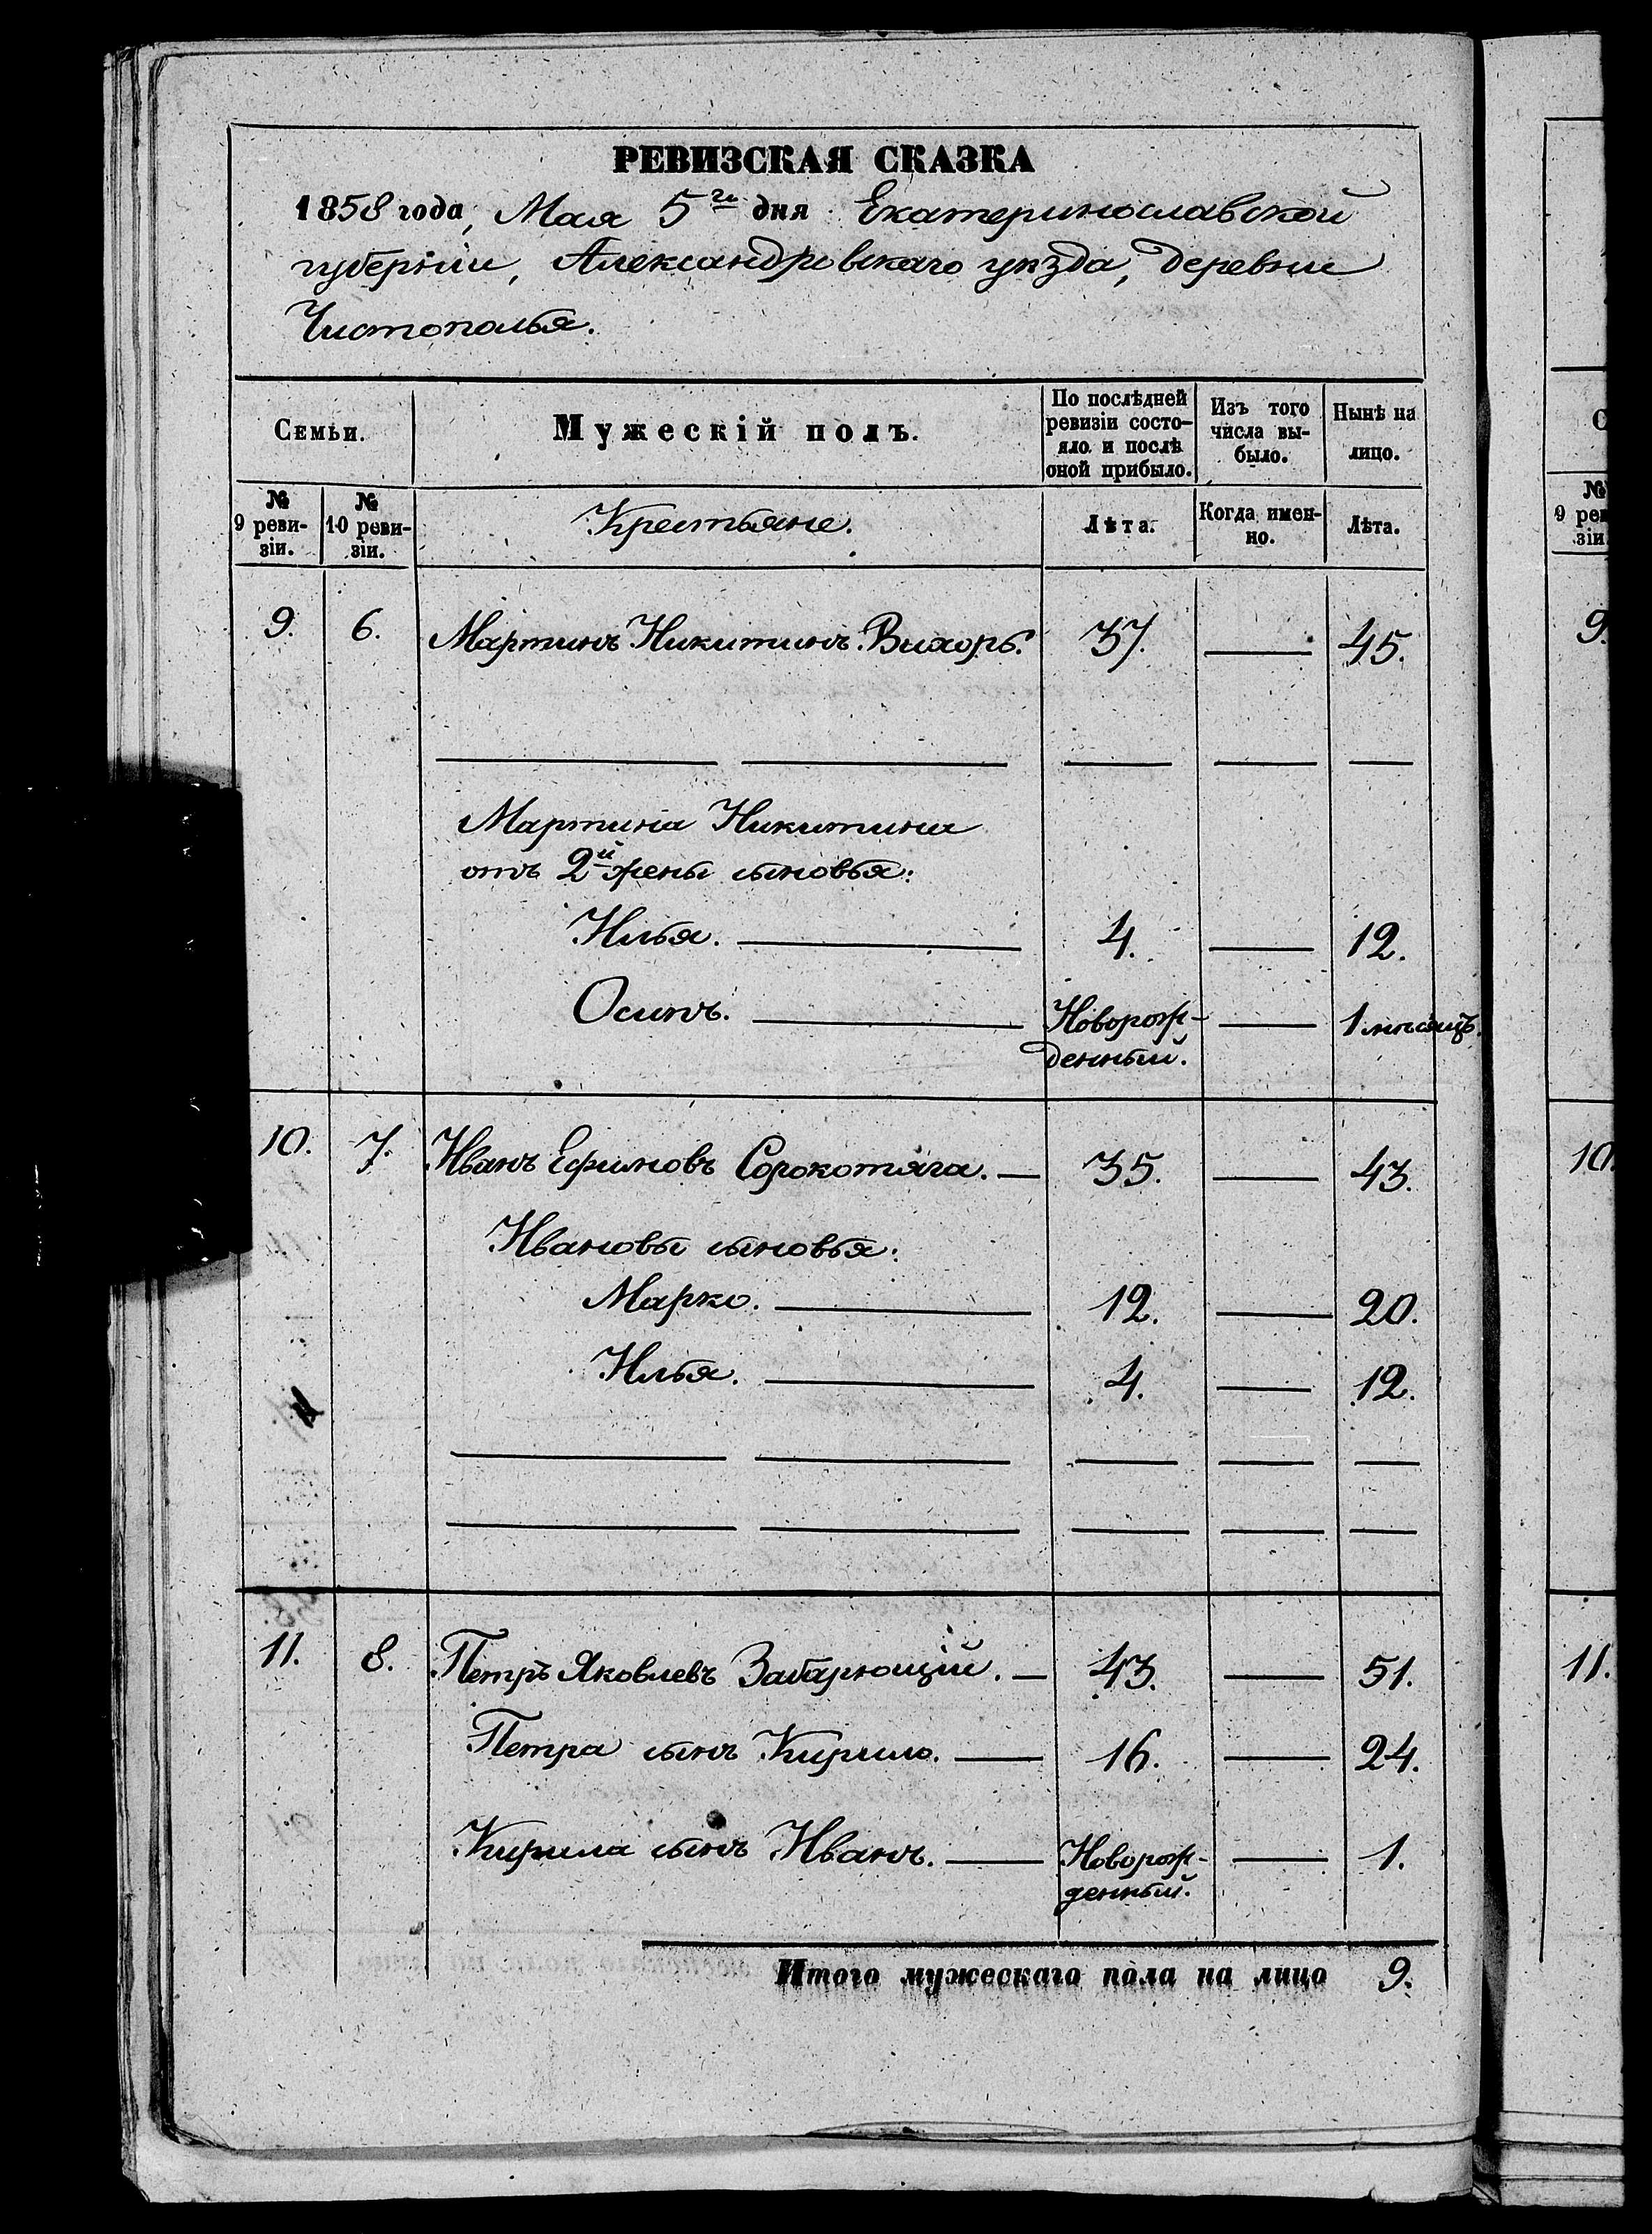 РЕВИЗСКАЯ СКАЗКА
1858 года, Мая 5го дня Екатеринославской
губернiи, Александровскаго уѣзда, деревни
Чистополья.
Семьи. Мужескiй полъ. По послѣдней ревизiи состо- яло и послѣ оной прибыло. Изъ того числа вы- было. Нынѣ на лицо.
№ 9 реви- зiи. № 10 реви- зiи. Крестьяне. Лѣта. Когда имен- но. Лѣта.
9. 6. Мартинъ Никитинъ Вихорь. 37. — 45.
Мартина Никитина
отъ 2й жены сыновья:
Илья. — 4. — 12.
Осипъ. — Новорож- — 1 мѣсяцъ.
денный.
10. 7. Иванъ Ефимовъ Сорокотяга. — 35. — 43.
Ивановы сыновья:
Марко. — 12. — 20.
Илья. — 4. — 12.
11. 8. Петръ Яковлевъ Забарющiй. — 43. — 51.
Петра сынъ Кирило. — 16. — 24.
Кирила сынъ Иванъ. — Новорож- — 1.
денный.
Итого мужескаго пола на лицо 9.
С
№
9 рев
зiи
9.
10.
11.